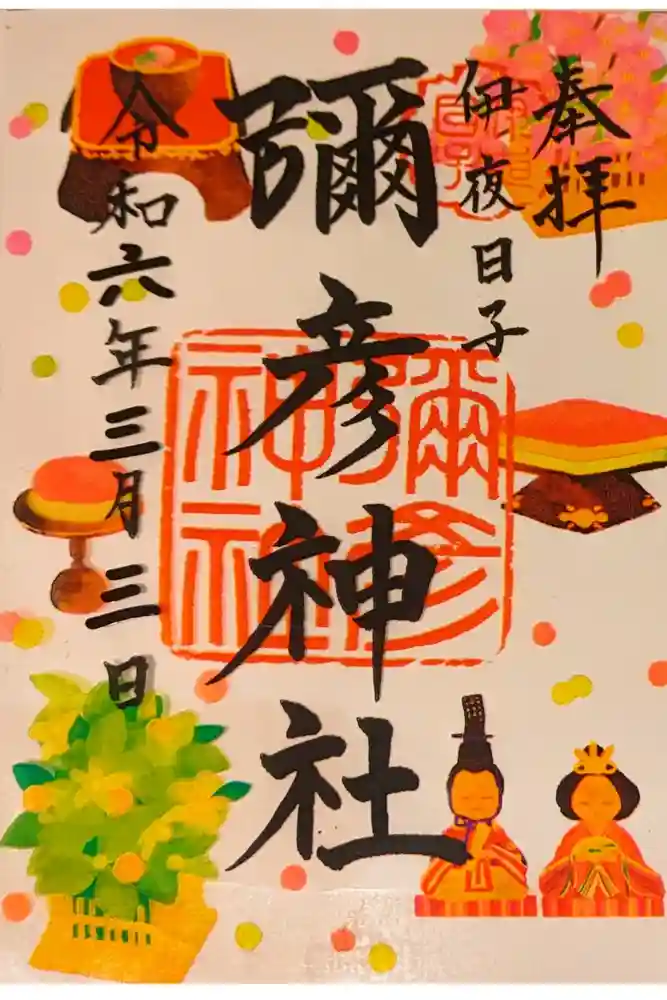 奉拝
伊夜日子
彌彦神社
彌彦
神社
令和六年三月三日